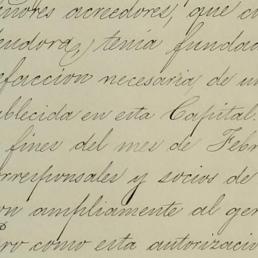 nores acreedores, que co
eudora, tenía fundad
facción necesaria de un
blecida en esta Capital.
fines del mes de Febr
orresponsales y socios de
on ampliamente al ger
ro como esta autorizacio